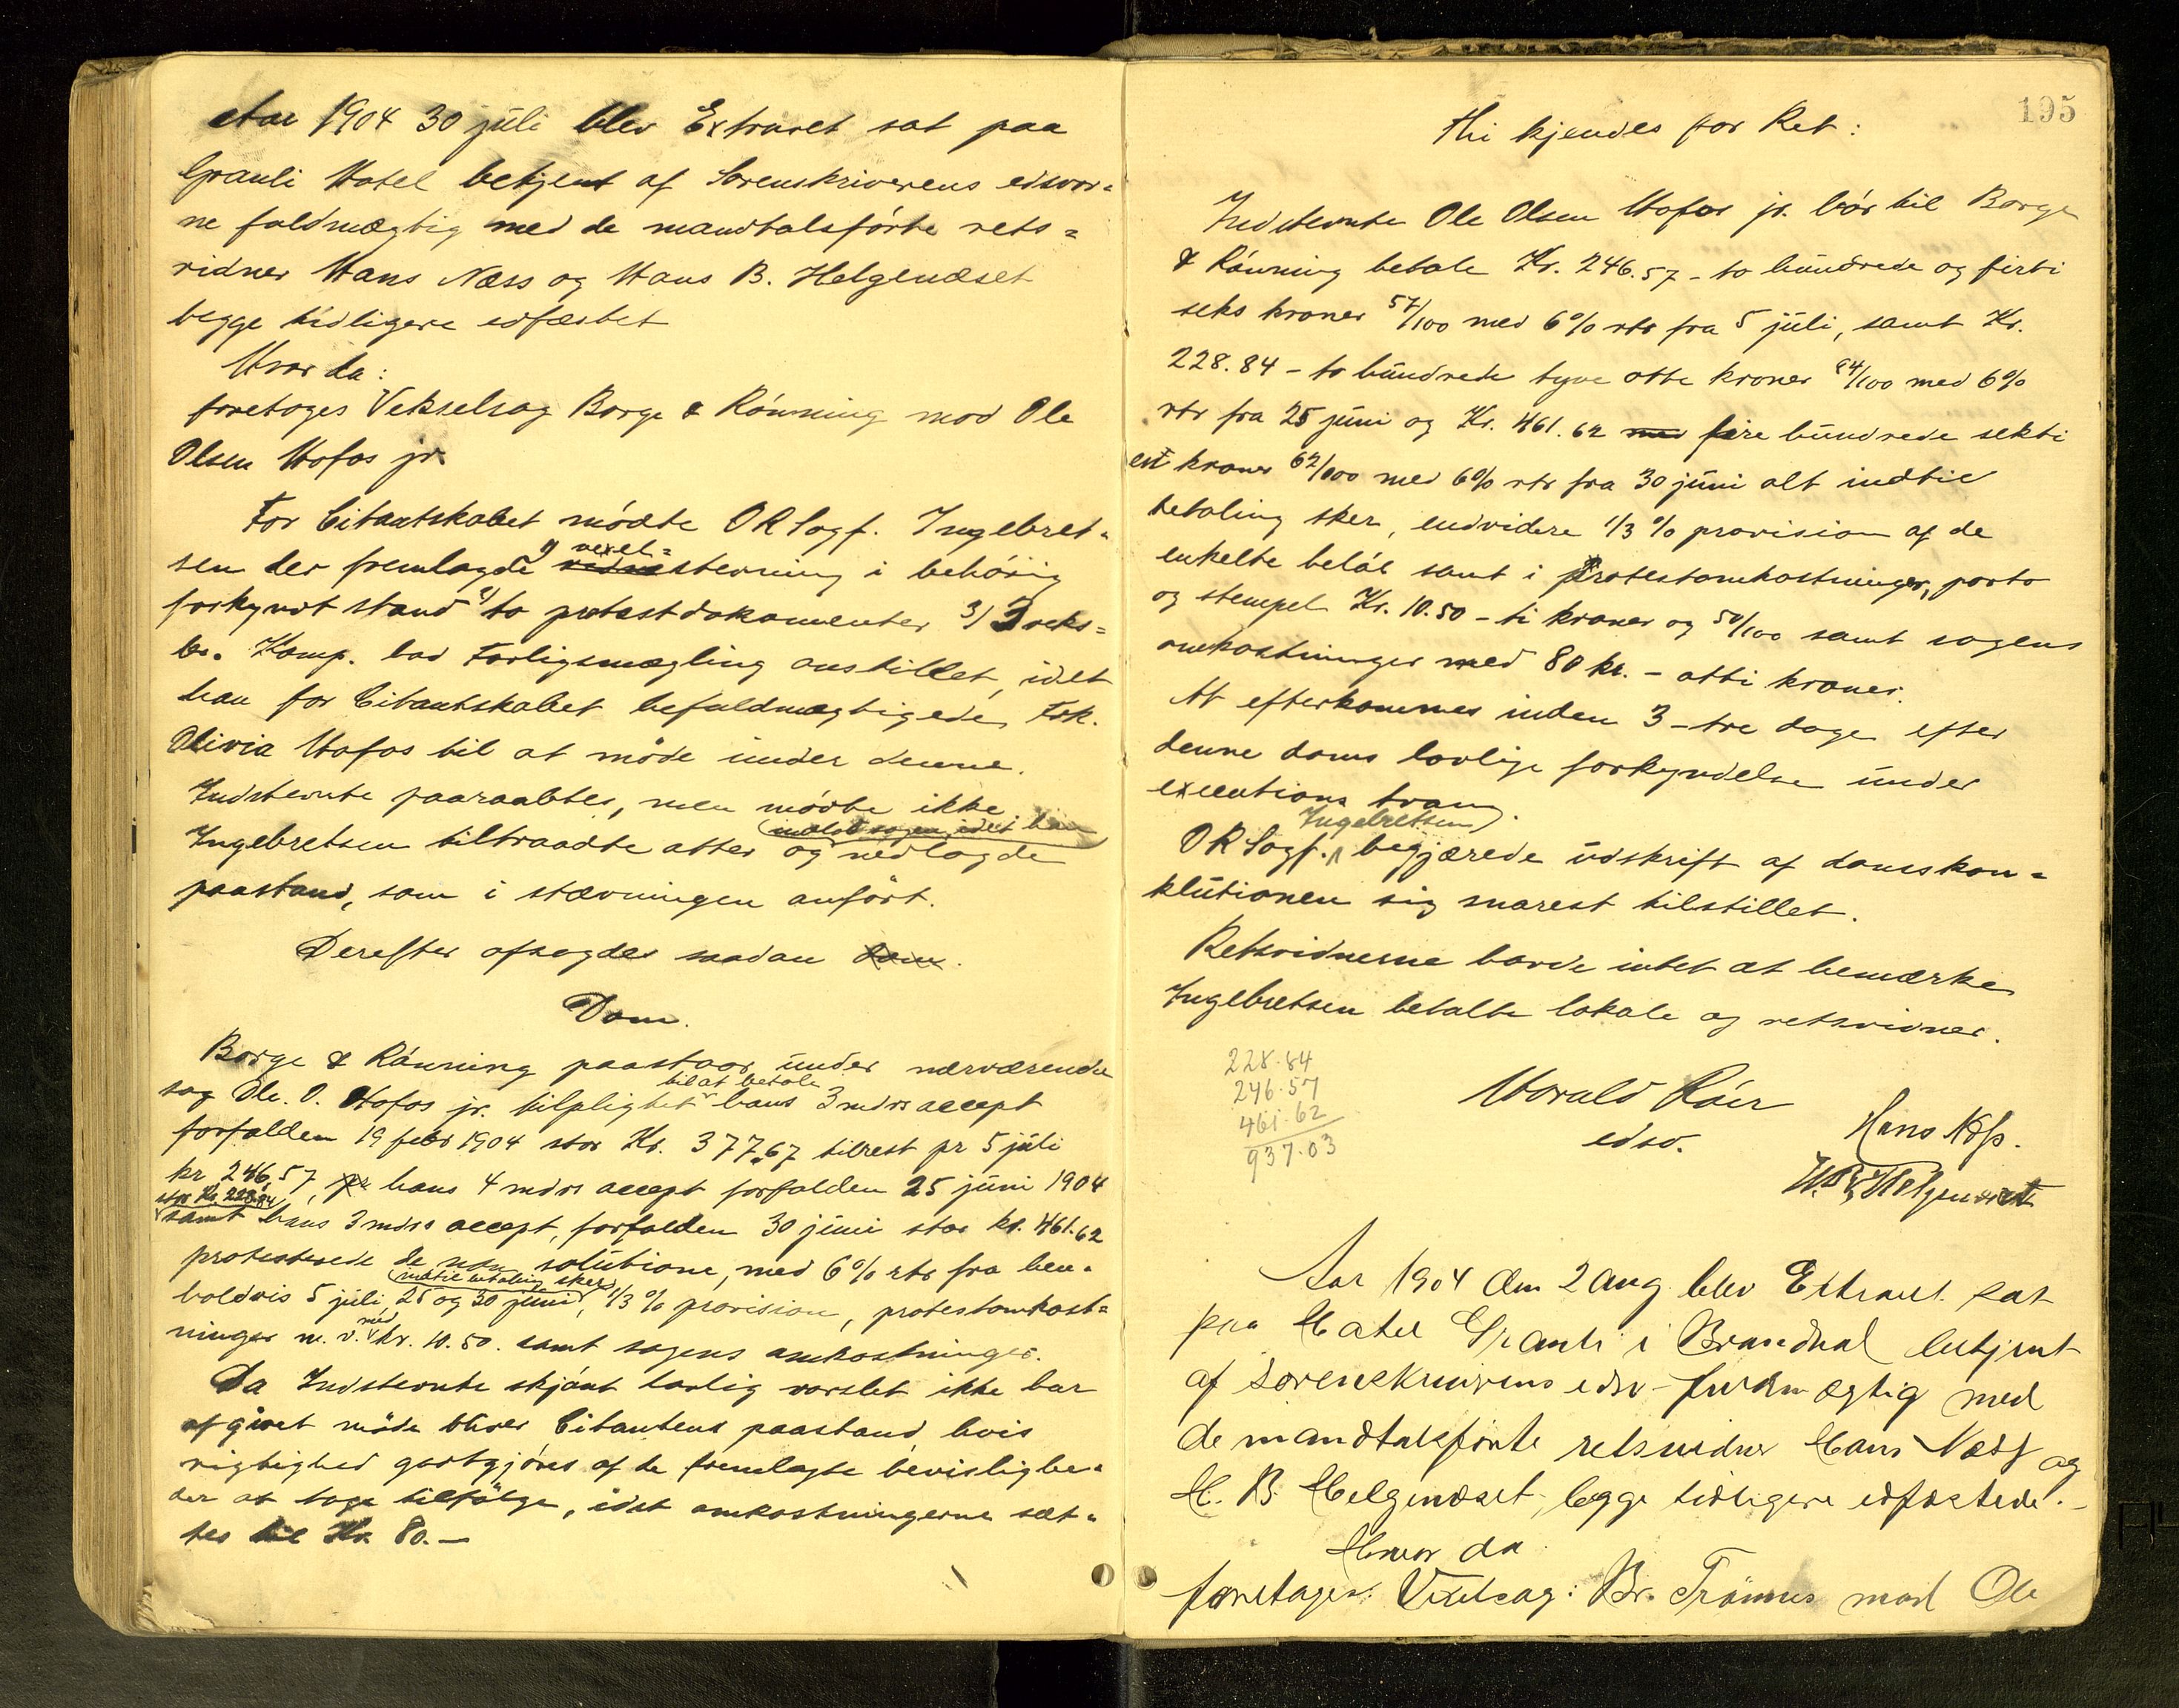 Aar 1904 30 júli blev Extraret sat paa
Grauli Hotel betjent af Sorenskriverens edsvor=
ne fuldmægtig med de mandtalsförte rets=
vidner Hans Næss og Hans B. Helgenæset
begge tidligere edfæstet
Hvor da:
foretoges Vekselsag Borge & Rönning mod Ole
Olsen Hofos jr.
For Citantskabet mödte O R Sagf. Ingebret=
sen der fremlagde 1) vexel= stevning i behörig
forkyndt stand 2) to protestdokumenter 3) 3 veks=
ler. Komp. bad Forligsmægling anstillet, idet
han for Citantskabet befuldmægtigede Frk.
Olivia Hofos til at möde under denne.
Indstevnte paaraabtes, men mödte ikke
(indlod sagen, idet han
Ingebretsen tiltraadte atter og nedlagde
paastand, som i stævningen anfört.
Derefter afsagdes saadan dom.
Dom.
Borge & Rönning paastaar únder nærværende
til at betale
sag Ole. O. Hofos jr. tilpligtet hans 3 mdrs accept
forfalden 19 febr 1904 stor Kr. 377,67 tilrest pr 5 júli
kr 246,57, hans 4 mdrs accept forfalden 25 júni 1904
stor Kr. 228.84
samt hans 3 mdrs accept, forfalden 30 júni stor kr. 461.62
protesterede de non solútione, med 6% rtr fra hen=
indtil betaling sker
holdsvis 5 júli, 25 og 30 júni, 1/3 % provision, protestomkost=
ninger m. v. med kr. 10.50. samt sagens omkostninger.
Da Indstevnte skjönt lovlig varslet ikke har
afgivet möde bliver Citantens paastand, hvis
rigtighed godtgjöres af de fremlagte bevislighe=
der at tage tilfölge, idet omkostningerne sæt=
tes til Kr. 80.—
195
Thi kjendes for Ret:
Indstevnte Ole Olsen Hofos jr. bör til Borge
& Rönning betale Kr. 246.57 - to húndrede og firti
seks kroner 57/100 med 6% rtr fra 5 júli, samt Kr.
228.84 - to húndrede tyve otte kroner 84/100 med 6%
rtr fra 25 júni og Kr. 461.62 med fire húndrede seksti
en kroner 62/100 med 6% rtr fra 30 júni alt indtil
betaling sker, endvidere 1/3 % provision af de
enkelte belöb samt i protestomkostninger, porto
og stempel Kr. 10.50 - ti kroner og 50/100 samt sagens
omkostninger med 80 kr. - otti kroner.
At efterkommes inden 3 - tre dage efter
denne doms lovlige forkyndelse únder
executions tvang.
Ingebretsen
O R Sagf. begjærede údskrift af domskon=
klútionen sig snarest tilstillet.
Retsvidnerne havde intet at bemærke
Ingebretsen betalte lokale og retsvidner.
228.84
246.57
461.62
937.03
Harald Röer
edsv.
Hans Næss.
H. B. Helgenæset
Aar 1904 den 2 aug. blev Extraret sat
paa Hotel Grauli i Brandval betjent
af sorenskriverens edsv-fuldmægtig med
de mandtalsförte retsvidner Hans Næss og
H. B. Helgenæset, begge tidligere edfæstede.—
Hvor da
foretages: Vexelsag: Br. Trönnes mod Ole